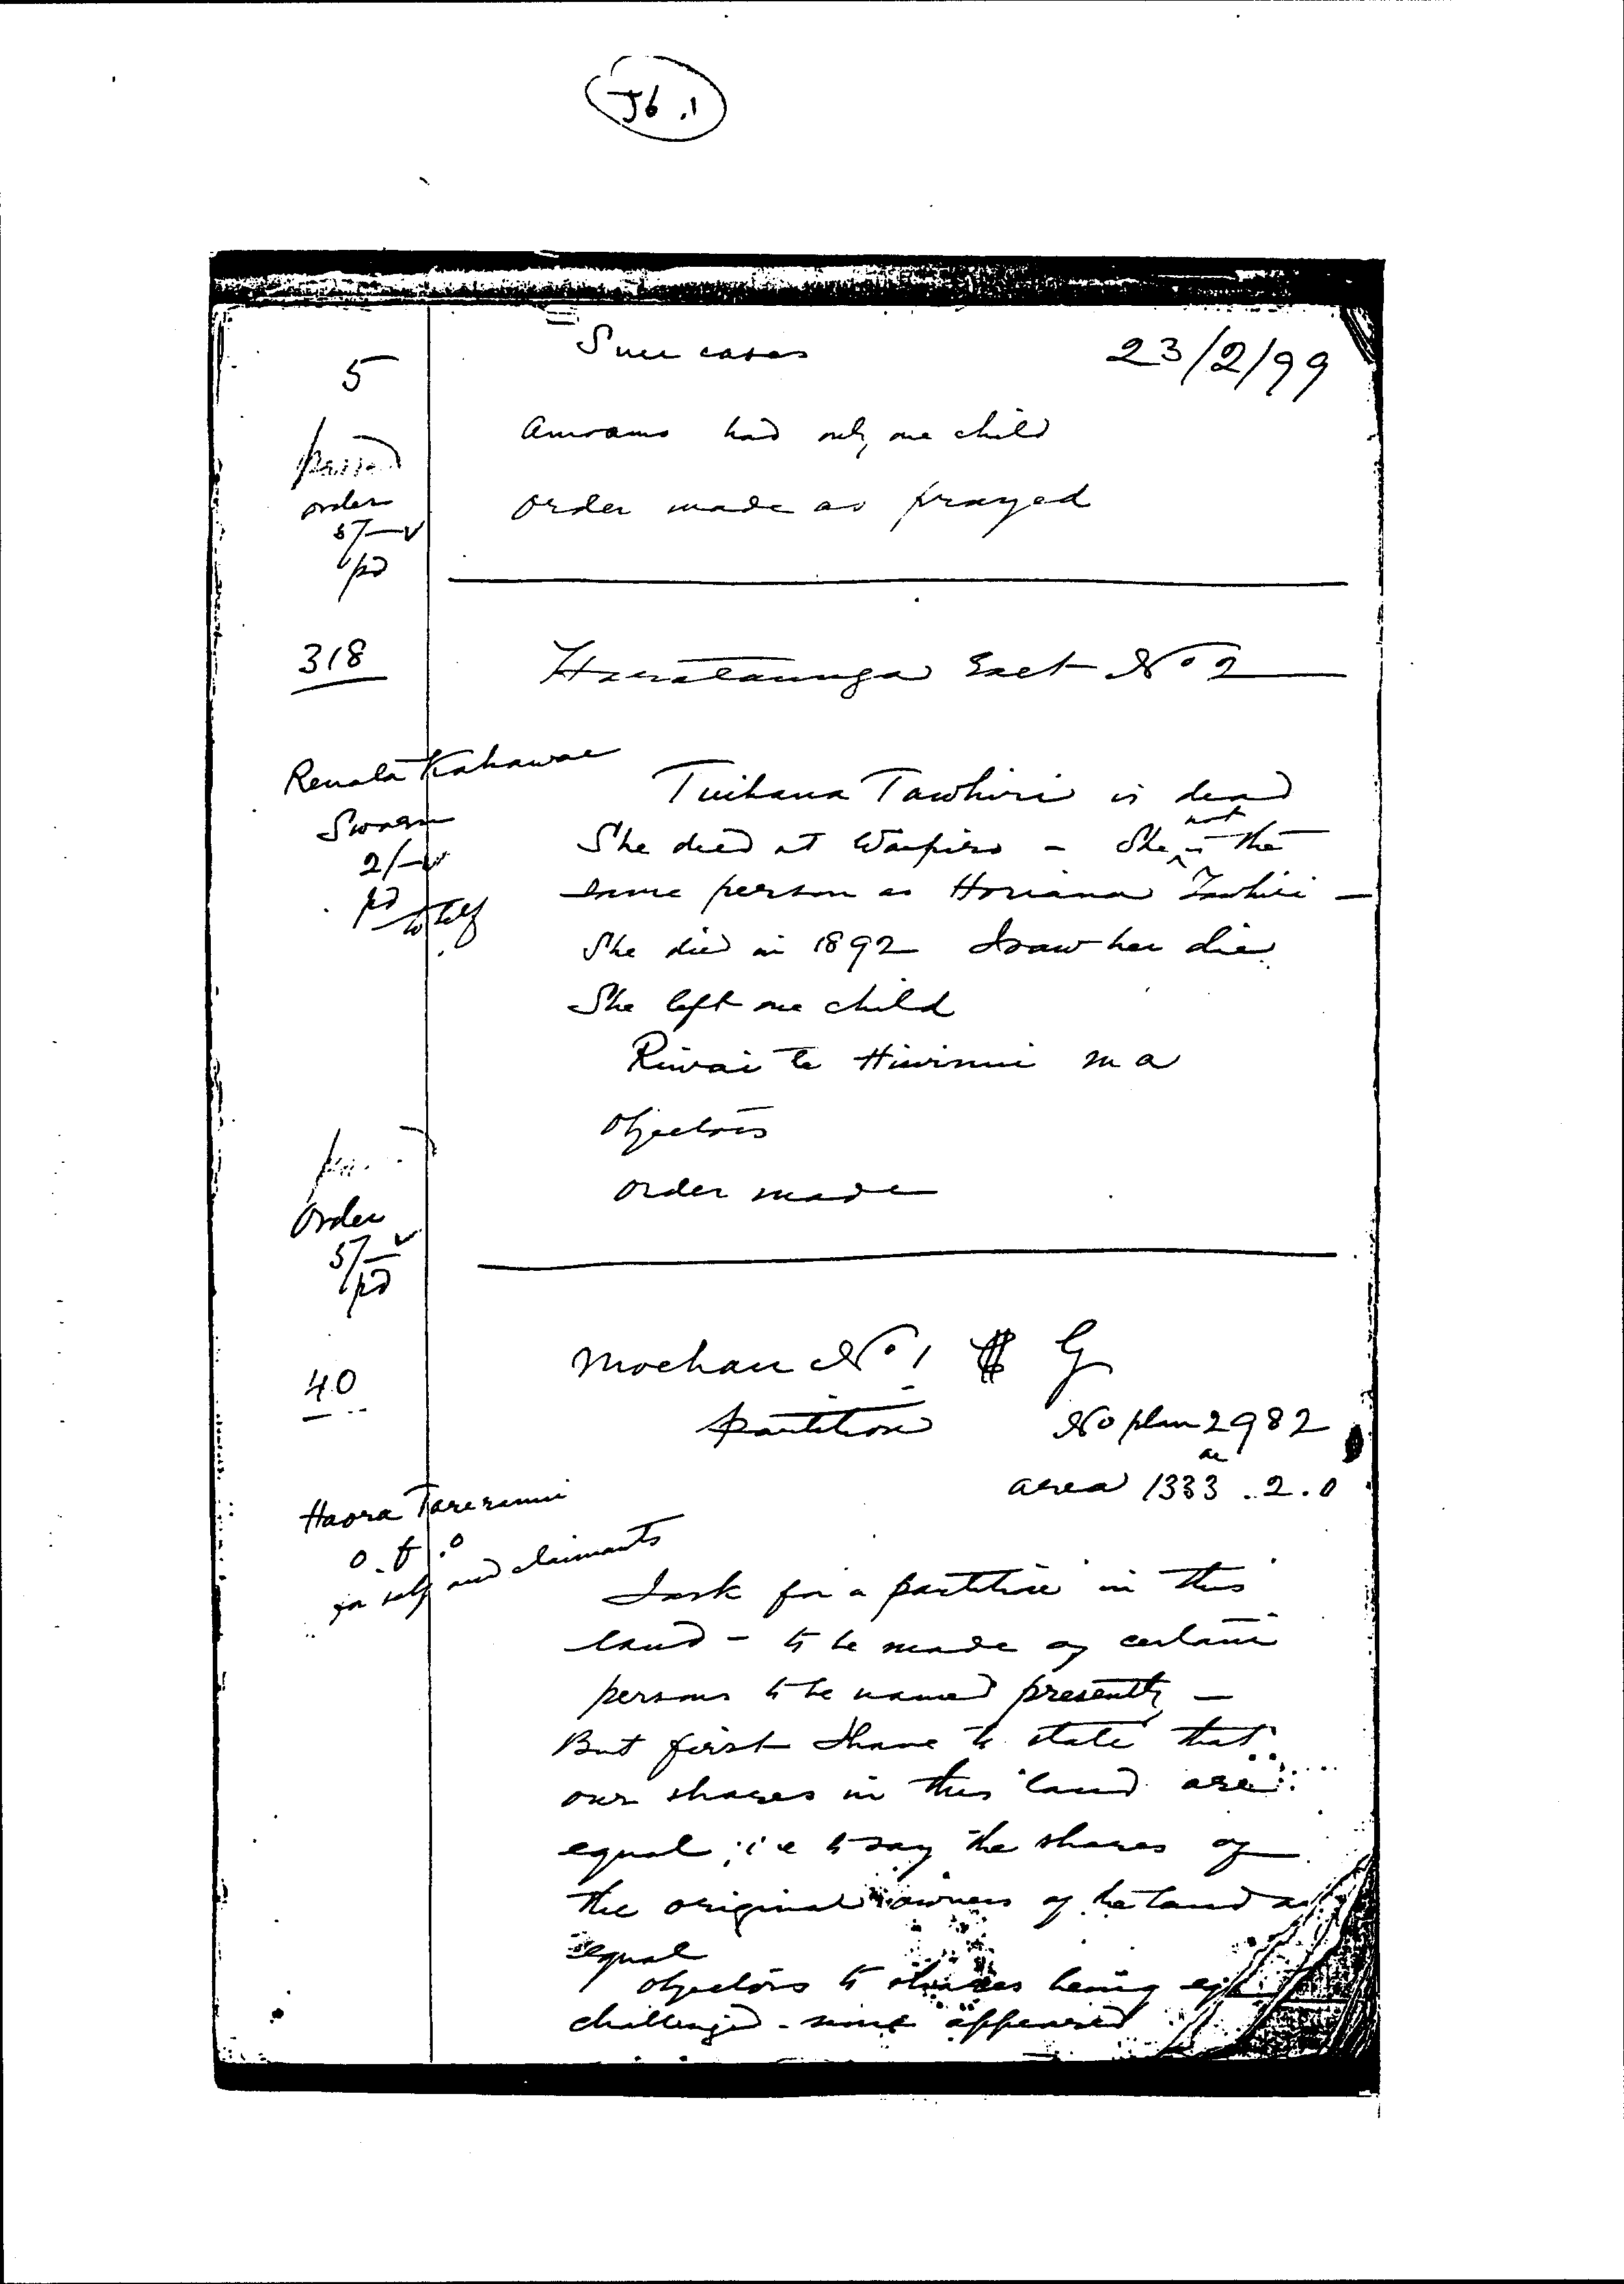 J6.1
Succ cases 23/2/99
5
had only one child
passed
order
5/- v
pd
order made as prayed
318
Harataunga East No 2
Renata Kahawai
Sworn
2/- v
pd to self
Tuihana Tawhiri is dead
She died at Waipiro - She is not the
same person as Horiana Tawhiri -
She died in 1892 I saw her die
She left one child
Riwai te Hiwinui m a
Objectors
order made
Order
5/- v
pd
40
Moehau No 1 G
Partition No plan 2982
ac
area 1333.2.0
Haora Tareranui
o.f.o
for self and claimants
I ask for a partition in this
land - to be made of certain
persons to be named presently -
But first I have to state that
our shares in this land are
equal; i e to say the shares of
the original owners of the land are
equal
objectors to shares being
challenged - none appeared